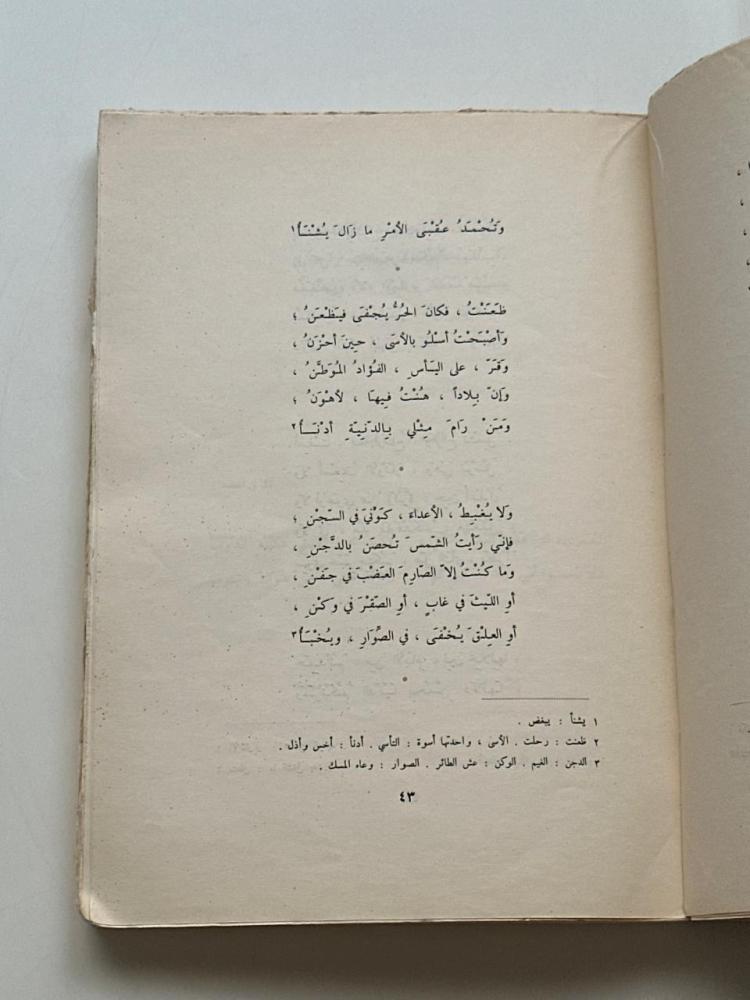 وَتُحْمَدُ عُقْبَى الأمْرِ ما زَالَ يُشْنَأُ١
*
ظَعَنْتُ ، فكانَ الحُرُّ يُجْفَى فيَظْعَنُ ؛
وَأصْبَحْتُ أسْلُو بالأسَى ، حِينَ أحْزَنُ ،
وَقَرّ ، على اليَأسِ ، الفُؤادُ المُوَطَّنُ ،
وَإنّ بِلاداً ، هُنْتُ فِيهَا ، لأهْوَنُ ؛
وَمَنْ رَامَ مِثْلي بِالدّنِيّةِ أدْنَأُ٢
*
وَلا يُغْبِطُ ، الأعداءَ ، كَوْنيَ في السّجْنِ ؛
فإنّي رَأيتُ الشّمْسَ تُحصَنُ بالدَّجْنِ ،
وَما كُنْتُ إلاّ الصّارِمَ العَضْبَ في جَفْنِ ،
أوِ اللّيثَ في غابٍ ، أوِ الصّقْرَ في وَكْنِ ،
أوِ العِلْقَ يُخْفَى ، في الصِّوَارِ ، ويُخْبَأُ٣
*
١ يشنأ : يبغض .
٢ ظعنت : رحلت . الأسى ، واحدتها أسوة : التأسي . أدنأ : أخس وأذل .
٣ الدجن : الغيم . الوكن : عش الطائر . الصوار : وعاء المسك .
٤٣